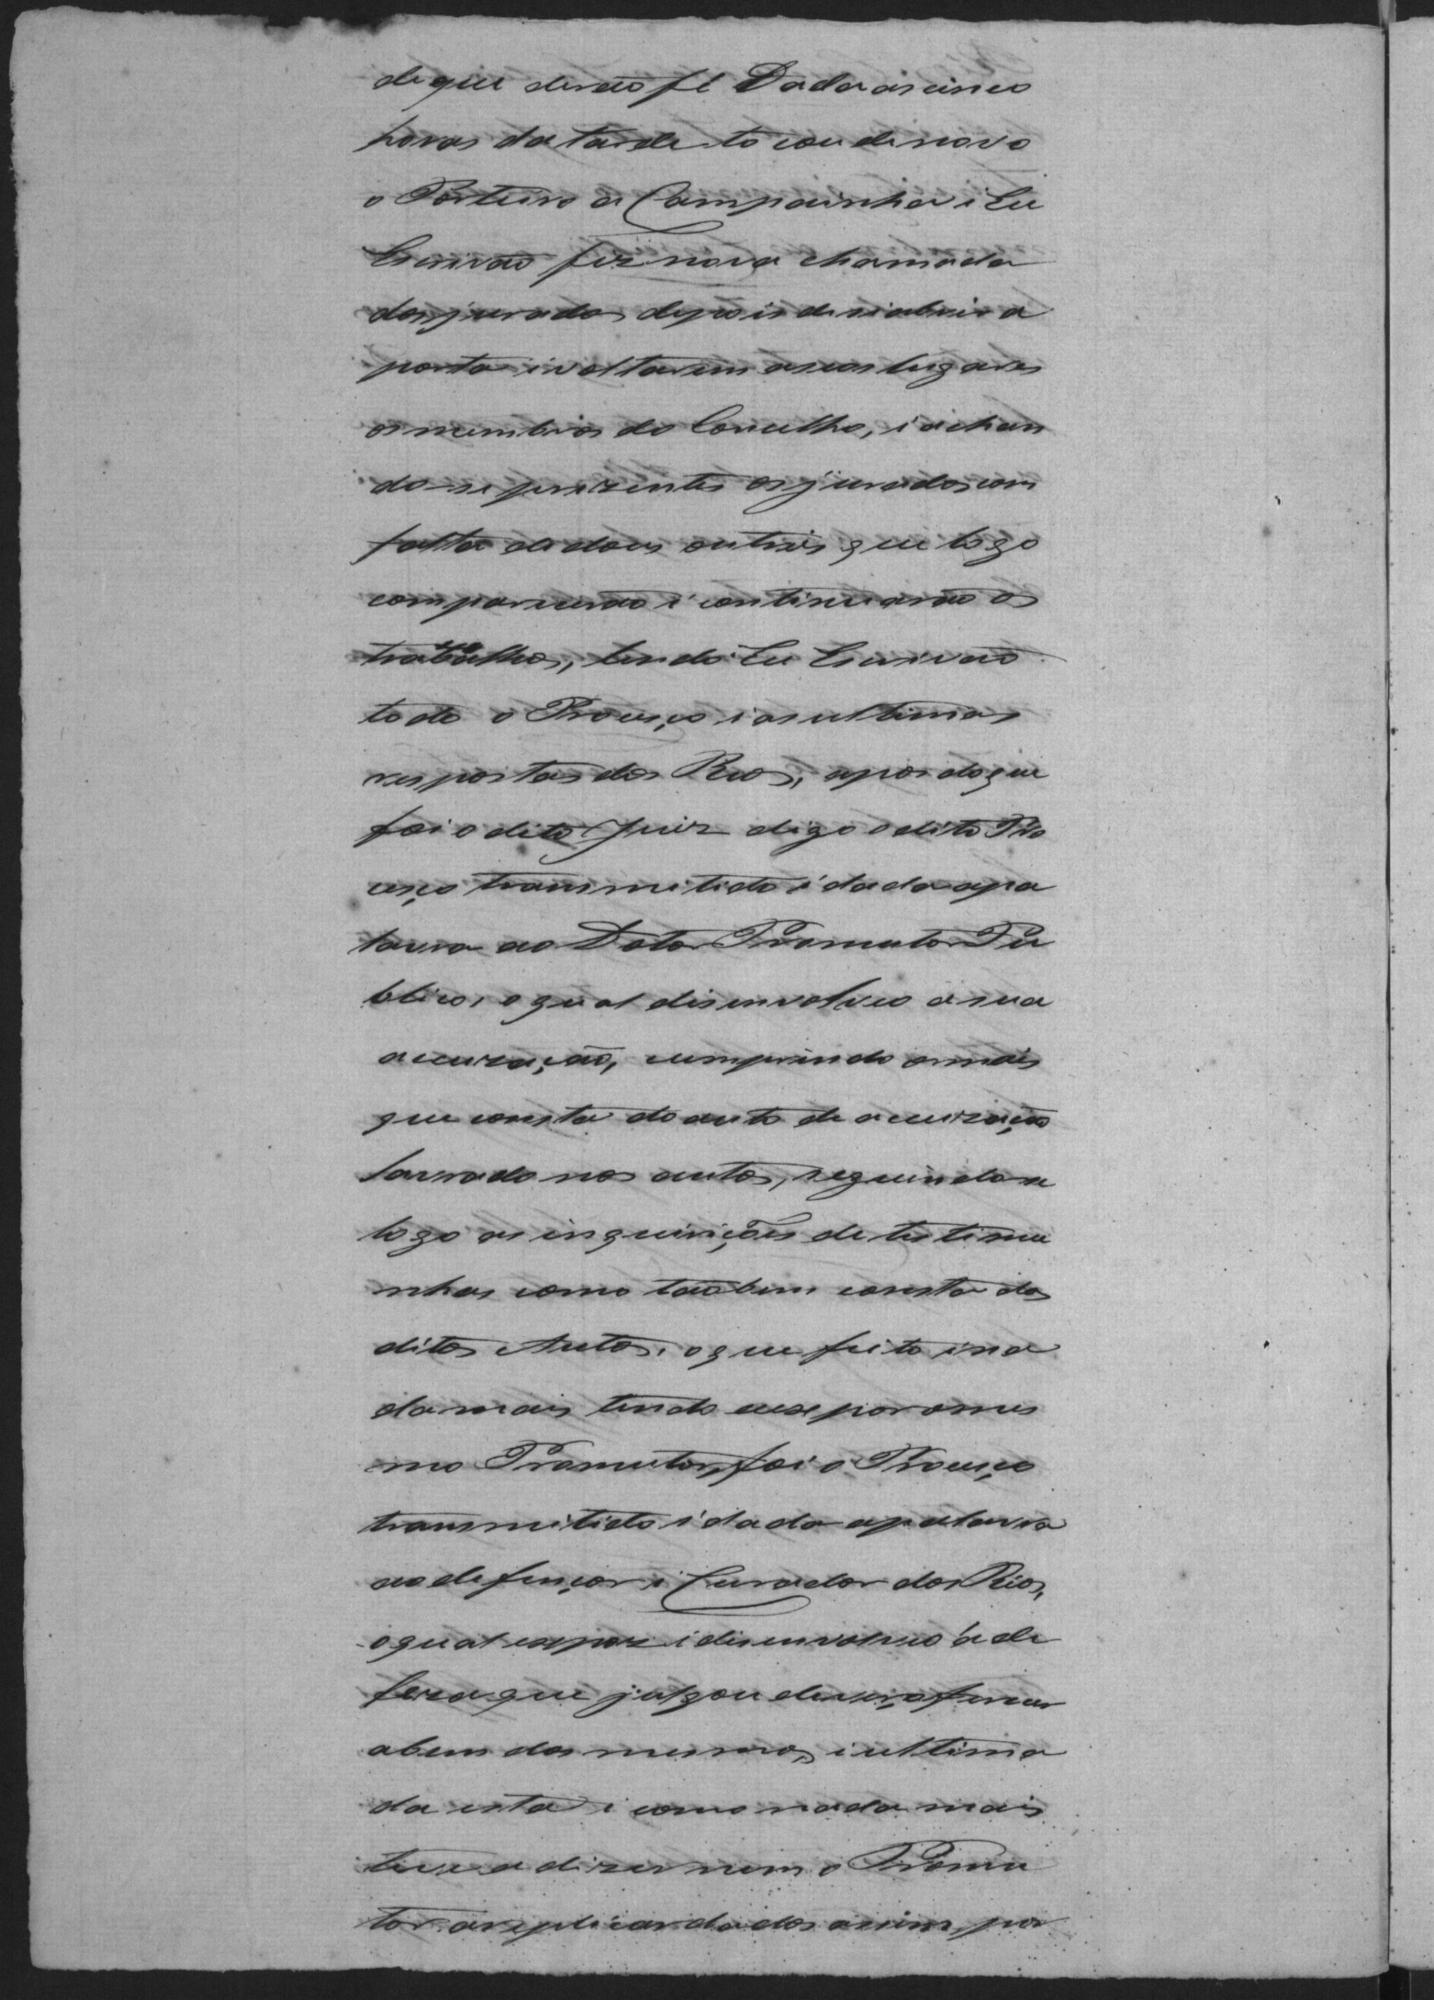 de que derão fé Dada as cinco
horas da tarde tocou de novo
o Porteiro a Campainha i Eu
Escrivão fiz nova chamada
dos jurados depois de si abrir a
porta i voltarem a seos lugares
os membros do Concelho, i achan
do-se prezentes os jurados com
falta de dous outros, que logo
comparecerão i continuarão os
trabalhos, lendo Eu Escrivão
todo o Proceço i as ultimas
respostas dos Reos, apos do que
foi o dito Juiz digo o dito Pro
ceço transmitido i dada a pa
lavra ao Dotor Promutor Pu
blico, o qual disenvolveo a sua
accuzação, cumprindo o mais
que consta do auto de accuzação
lavrado nos autos, seguindose
logo as inquirições de testimu
nhas como tãobem consta dos
ditos Autos, o que feito i na
da mais tendo a expor o mes
mo Promutor, foi o Proceço
transmitido i dada a palavra
ao defençor i Curador dos Reos,
o qual expoz i disenvolveo a de
feza que julgou
a bem dos mesmos, i ultima
da esta i como nada mais
tive a dizer nem o Promu
tor a replicar dados assim por